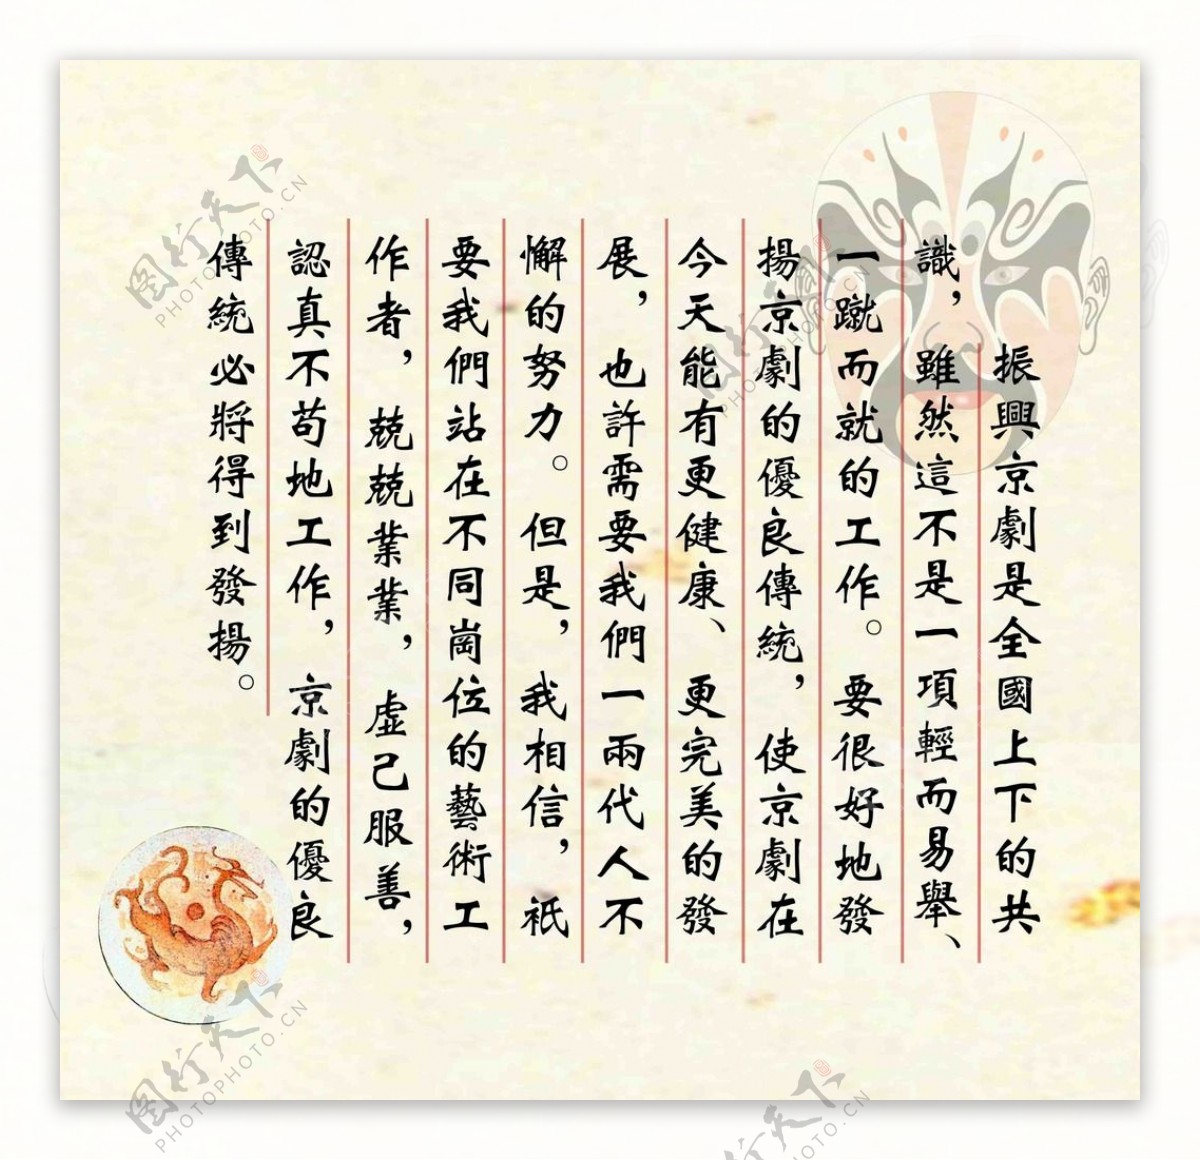 振興京劇是全國上下的共
識，雖然這不是一項輕而易舉、
一蹴而就的工作。要很好地發
揚京劇的優良傳統，使京劇在
今天能有更健康、更完美的發
展，也許需要我們一兩代人不
懈的努力。但是，我相信，衹
要我們站在不同崗位的藝術工
作者，兢兢業業，虛己服善，
認真不苟地工作，京劇的優良
傳統必將得到發揚。
图行天下
PHOTOPHOTO.CN
图行天下
PHOTOPHOTO.CN
图行天下
PHOTOPHOTO.CN